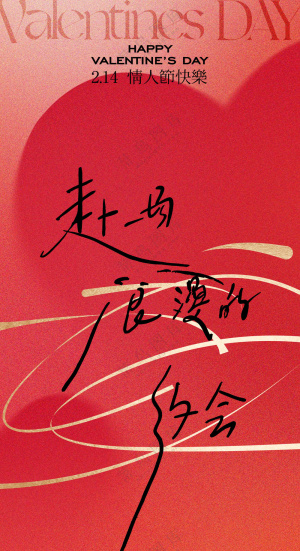 Valentines DAY
HAPPY
VALENTINE'S DAY
2.14 情人節快樂
赴一场
浪漫的
约会